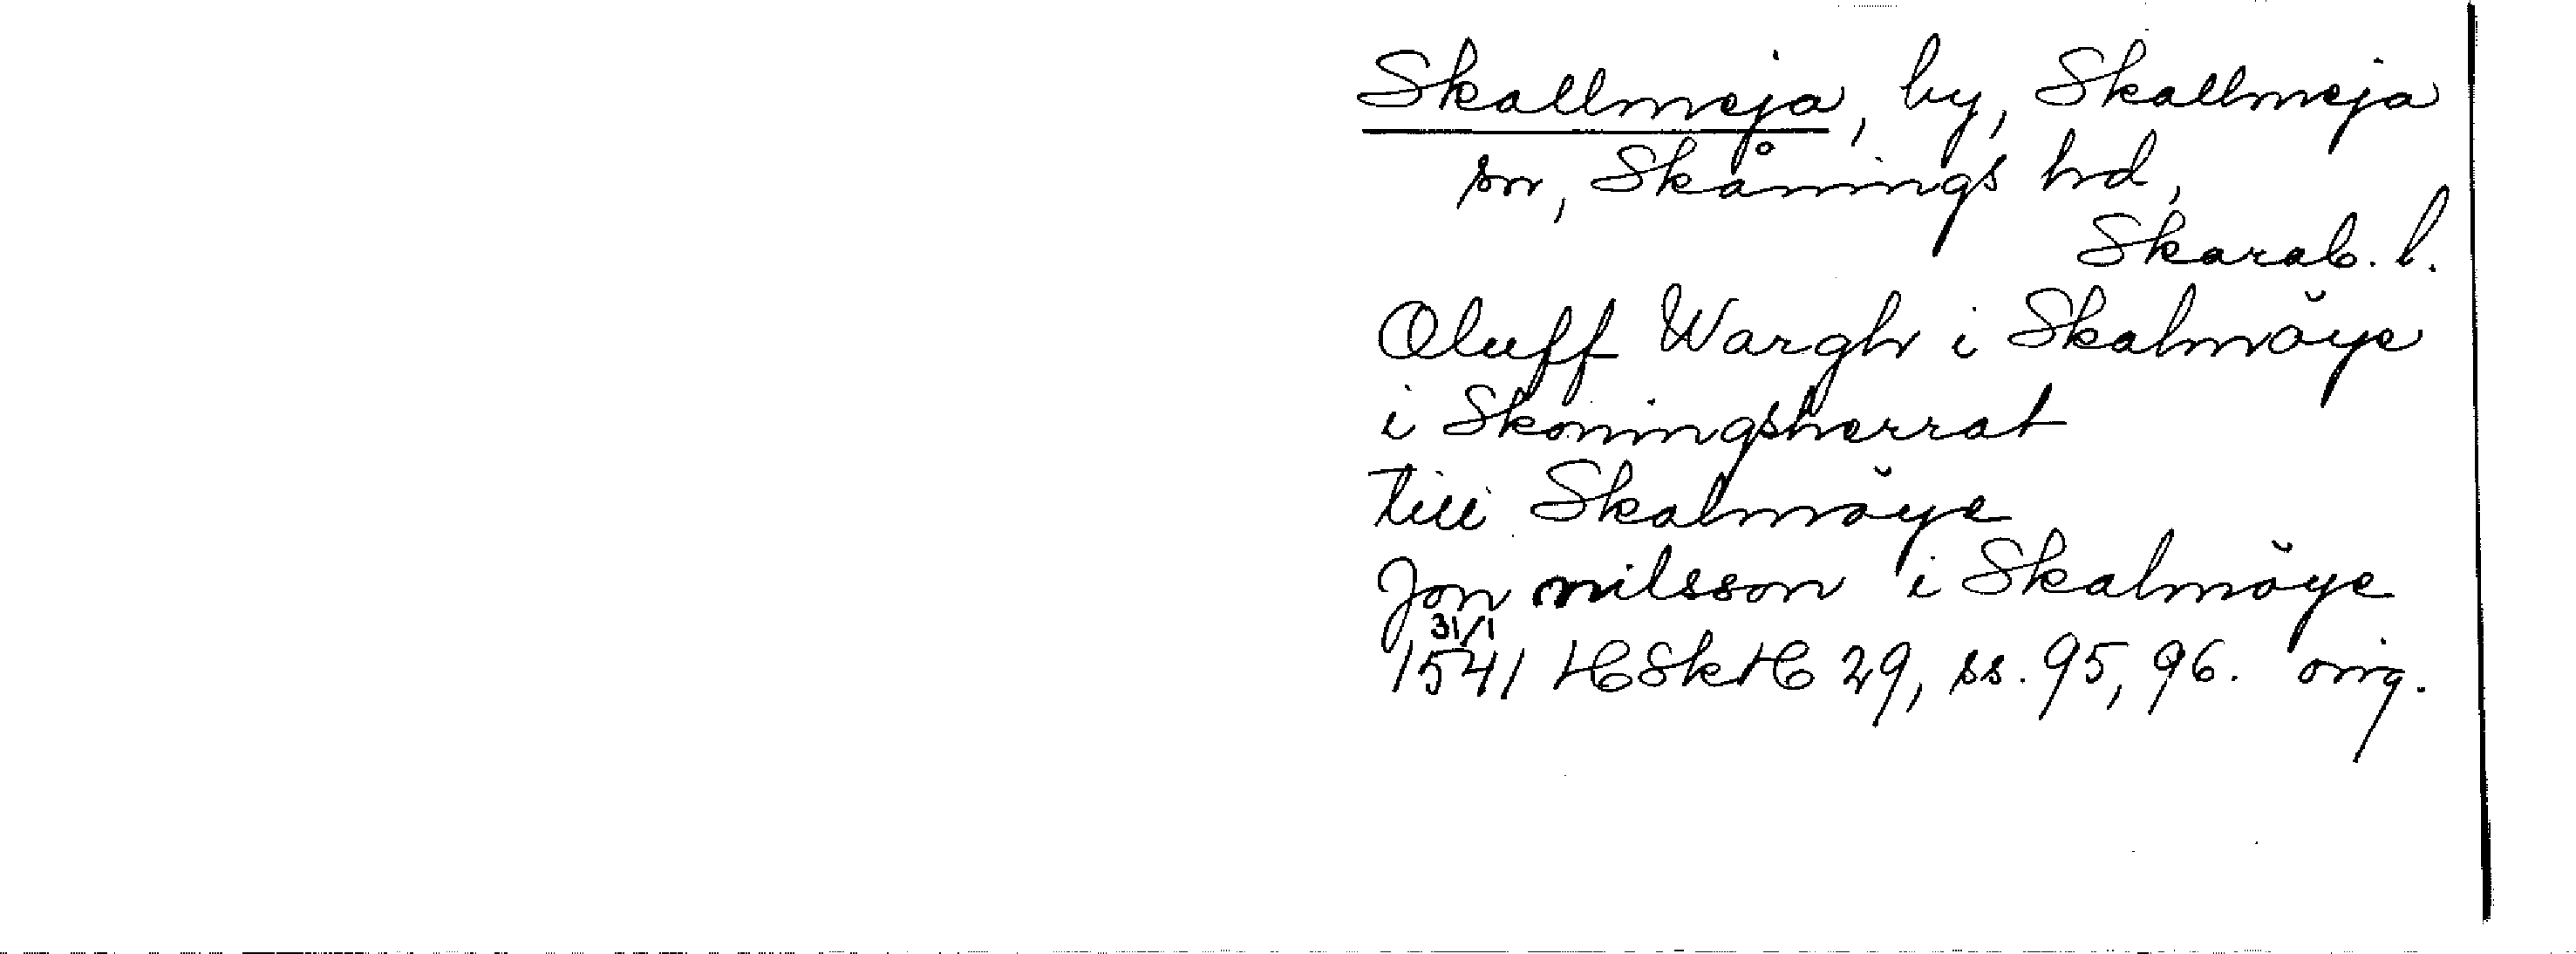 Skallmeja, by, Skallmeja
sn, Skånings hd,
Skarab. l.
Oluff Wargh i Skalmŏye
i Skoningsherrat
till Skalmŏye
Jon nilsson i Skalmŏye
31/1
1541 HSkH 29, ss. 95, 96. orig.